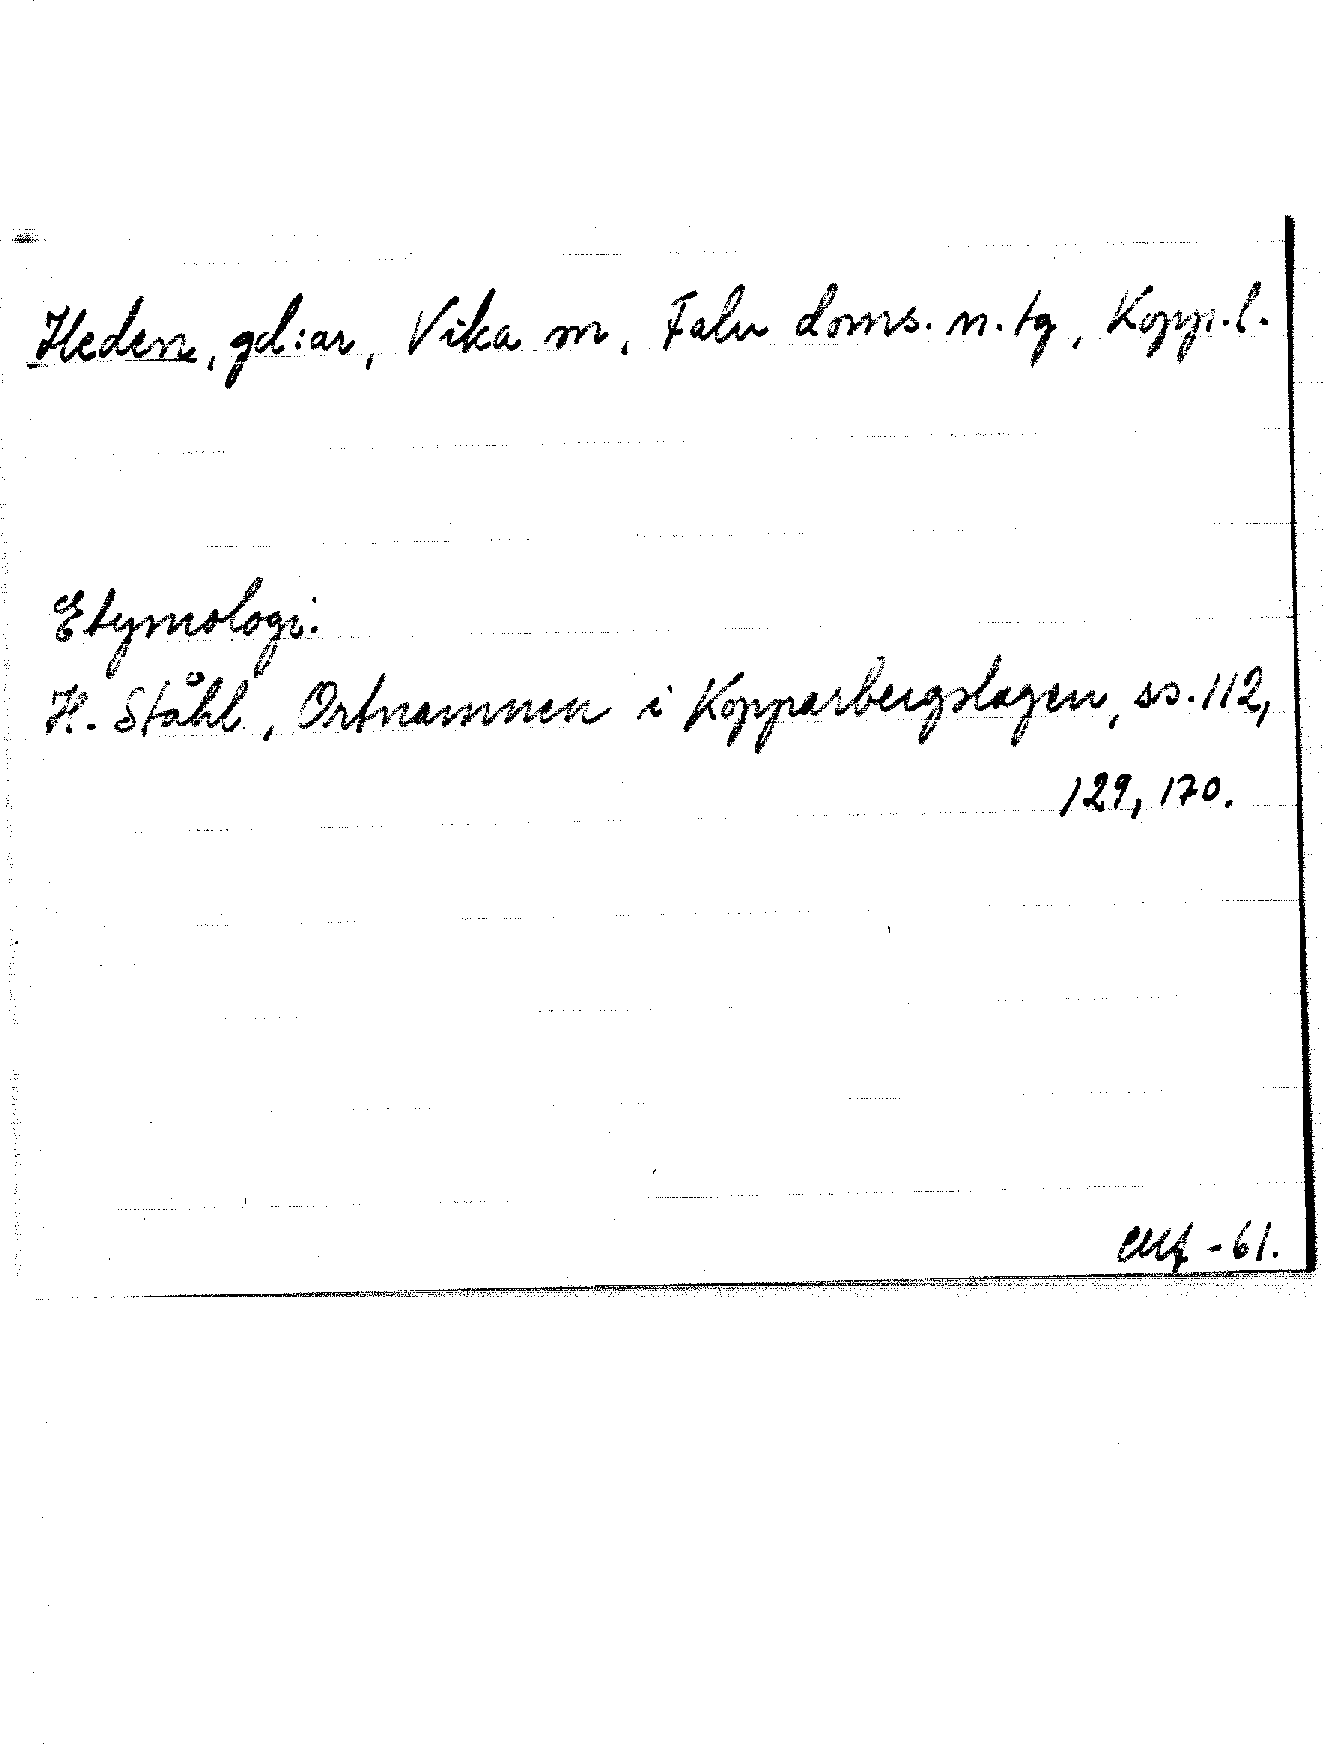 Heden, gd:ar, Vika sn, Falu doms. n. tg, Kopp. l.
Etymologi.
H. Ståhl, Ortnamnen i Kopparbergslagen, ss. 112,
129, 170.
-61.